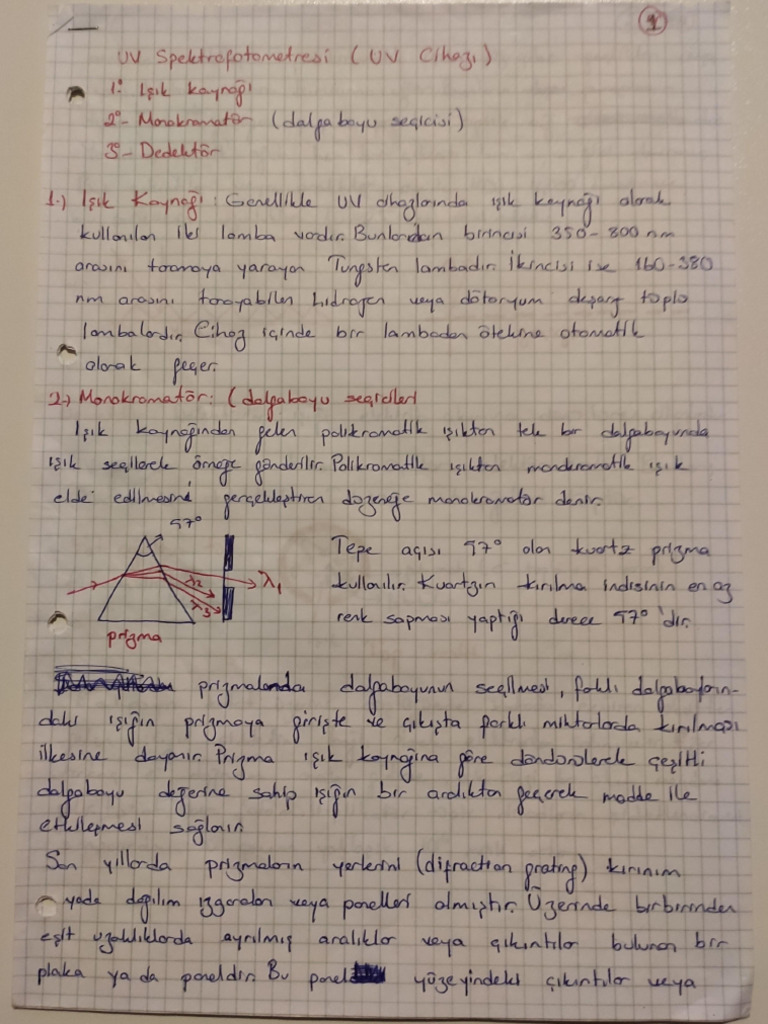 1
UV Spektrofotometresi (UV Cihazı)
1º Işık kaynağı
2º- Monokromatör (dalgaboyu seçicisi)
3º- Dedektör
1.) Işık Kaynağı: Genellikle UV cihazlarında ışık kaynağı olarak
kullanılan iki lamba vardır. Bunlardan birincisi 350-800 nm
arasını taramaya yarayan Tungsten lambadır. İkincisi ise 160-380
nm arasını tarayabilen hidrojen veya dötoryum deşarj toplu
lambalardır. Cihaz içinde bir lambadan ötekine otomatik
olarak geçer.
2.) Monokromatör: (dalgaboyu seçicileri
Işık kaynağından gelen polikromatik ışıktan tek bir dalgaboyunda
ışık seçilerek örneğe gönderilir. Polikromatik ışıktan monokromatik ışık
elde edilmesini gerçekleştiren düzeneğe monokromatör denir.
57º
λ1
λ2
λ3
prizma
Tepe açısı 57º olan kuartz prizma
kullanılır. Kuartzın kırılma indisinin en az
renk sapması yaptığı derece 57º'dir.
prizmalarda dalgaboyunun seçilmesi, farklı dalgaboyların-
daki ışığın prizmaya girişte ve çıkışta farklı miktarlarda kırılması
ilkesine dayanır. Prizma ışık kaynağına göre döndürülerek çeşitli
dalgaboyu değerine sahip ışığın bir aralıktan geçerek madde ile
etkileşmesi sağlanır.
Son yıllarda prizmaların yerlerini (difraction grating) kırınım
yada dağılım ızgaraları veya panelleri almıştır. Üzerinde birbirinden
eşit uzaklıklarda ayrılmış aralıklar veya çıkıntılar bulunan bir
plaka ya da paneldir. Bu panel yüzeyindeki çıkıntılar veya